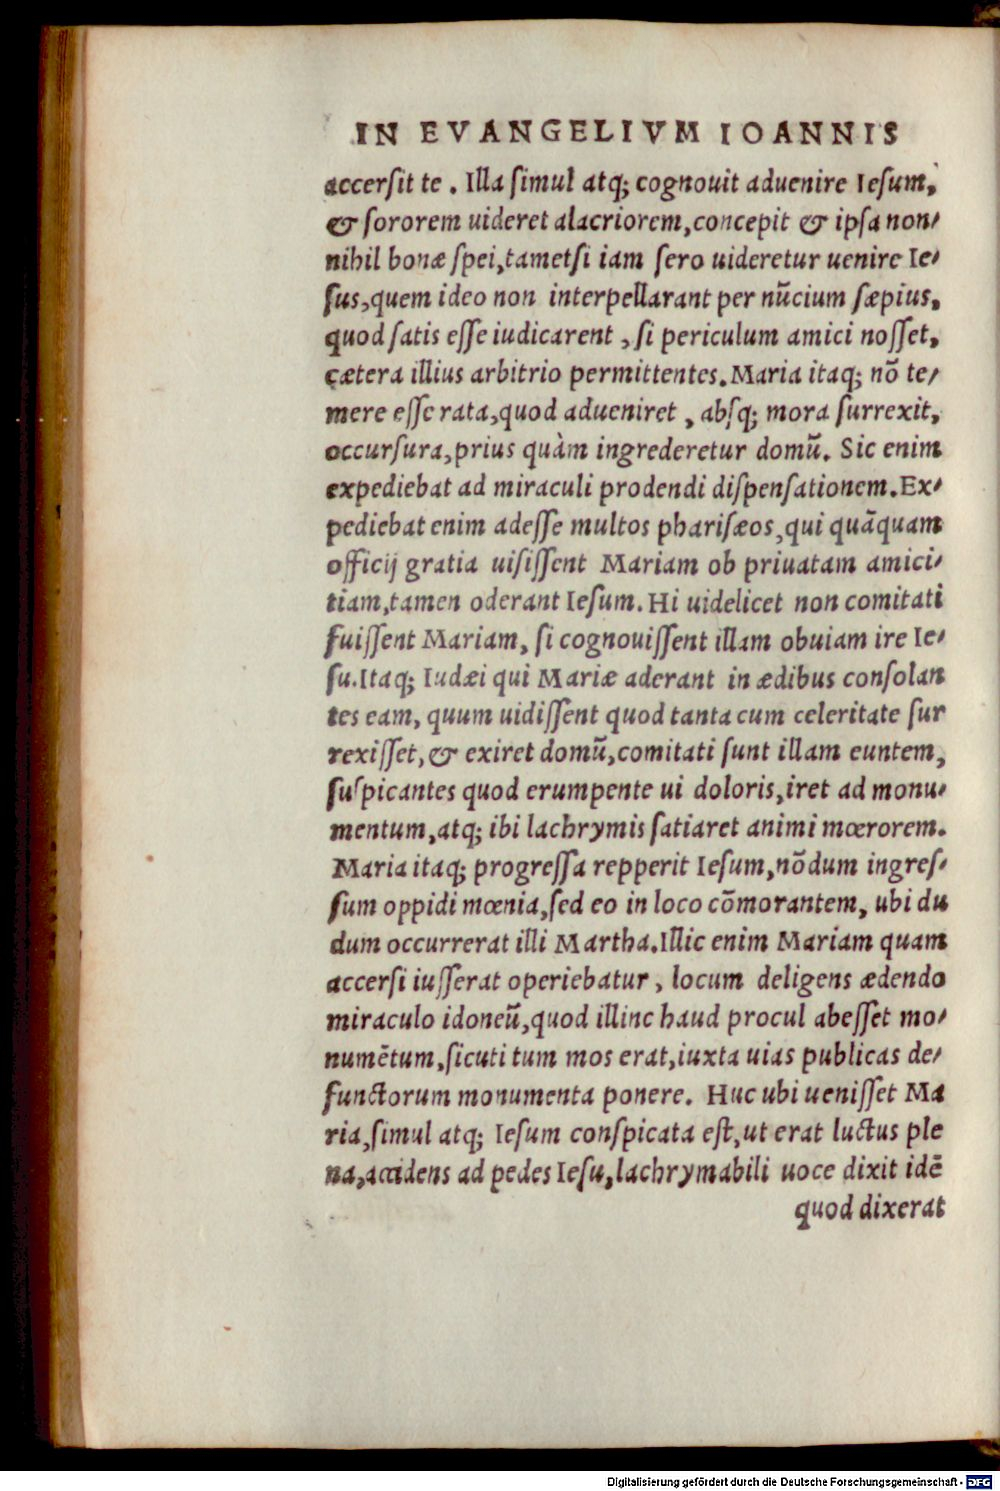 IN EVANGELIVM IOANNIS
accersit te . Illa simul atq; cognouit aduenire Iesum,
& sororem uideret alacriorem,concepit & ipsa non/
nihil bonæ spei,tametsi iam sero uideretur uenire Ie/
sus,quem ideo non interpellarant per nũcium sæpius,
quod satis esse iudicarent , si periculum amici nosset,
cætera illius arbitrio permittentes. Maria itaq; nõ te/
mere esse rata,quod adueniret , absq; mora surrexit,
occursura,prius quàm ingrederetur domũ. Sic enim
expediebat ad miraculi prodendi dispensationem. Ex/
pediebat enim adesse multos pharisæos,qui quãquam
officij gratia uisissent Mariam ob priuatam amici/
tiam,tamen oderant Iesum. Hi uidelicet non comitati
fuissent Mariam, si cognouissent illam obuiam ire Ie/
su.Itaq; Iudæi qui Mariæ aderant in ædibus consolan
tes eam, quum uidissent quod tanta cum celeritate sur
rexisset,& exiret domũ,comitati sunt illam euntem,
suspicantes quod erumpente ui doloris,iret ad monu/
mentum,atq; ibi lachrymis satiaret animi mœrorem.
Maria itaq; progressa repperit Iesum,nõdum ingres/
sum oppidi mœnia,sed eo in loco cõmorantem, ubi du
dum occurrerat illi Martha.Illic enim Mariam quam
accersi iusserat operiebatur , locum deligens ædendo
miraculo idoneũ,quod illinc haud procul abesset mo/
numẽtum,sicuti tum mos erat,iuxta uias publicas de/
functorum monumenta ponere. Huc ubi uenisset Ma
ria,simul atq; Iesum conspicata est,ut erat luctus ple
na,accidens ad pedes Iesu,lachrymabili uoce dixit idẽ
quod dixerat
Digitalisierung gefördert durch die Deutsche Forschungsgemeinschaft - DFG